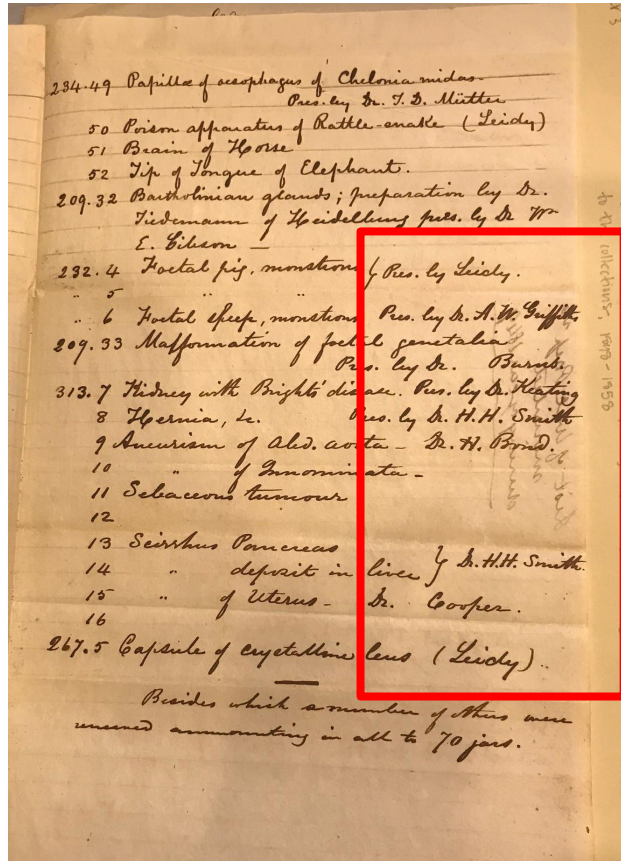 234.49 Papillæ of oesophagus of Chelonia midas.
Pres. by Dr. T. D. Mütter
50 Poison apparatus of Rattle-snake (Leidy)
51 Brain of Horse
52 Tip of Tongue of Elephant.
209.32 Bartholinian glands; preparation by Dr.
Tiedemann of Heidelburg pres. by Dr Wm
E. Gibson —
232.4 Foetal pig, monstrous } Pres. by Leidy.
" 5 " "
" 6 Foetal sheep, monstrous Pres. by Dr. A. W. Griffith
209.33 Malformation of foetal genetalia
Pres. by Dr. Burns.
313.7 Kidney with Brights' disease. Pres. by Dr. Keating
8 Hernia, &c. Pres. by Dr. H.H. Smith
9 Aneurism of Abd. aorta — Dr. H. Bond.
10 " of Innominata —
11 Sebaceous tumour
12
13 Scirrhus Pancreas } Dr. H.H. Smith.
14 " deposit in liver
15 " of Uterus — Dr. Cooper.
16
267.5 Capsule of crystalline lens (Leidy).
Besides which a number of others were
received ammounting in all to 70 jars.
to the collections, 1848-1858